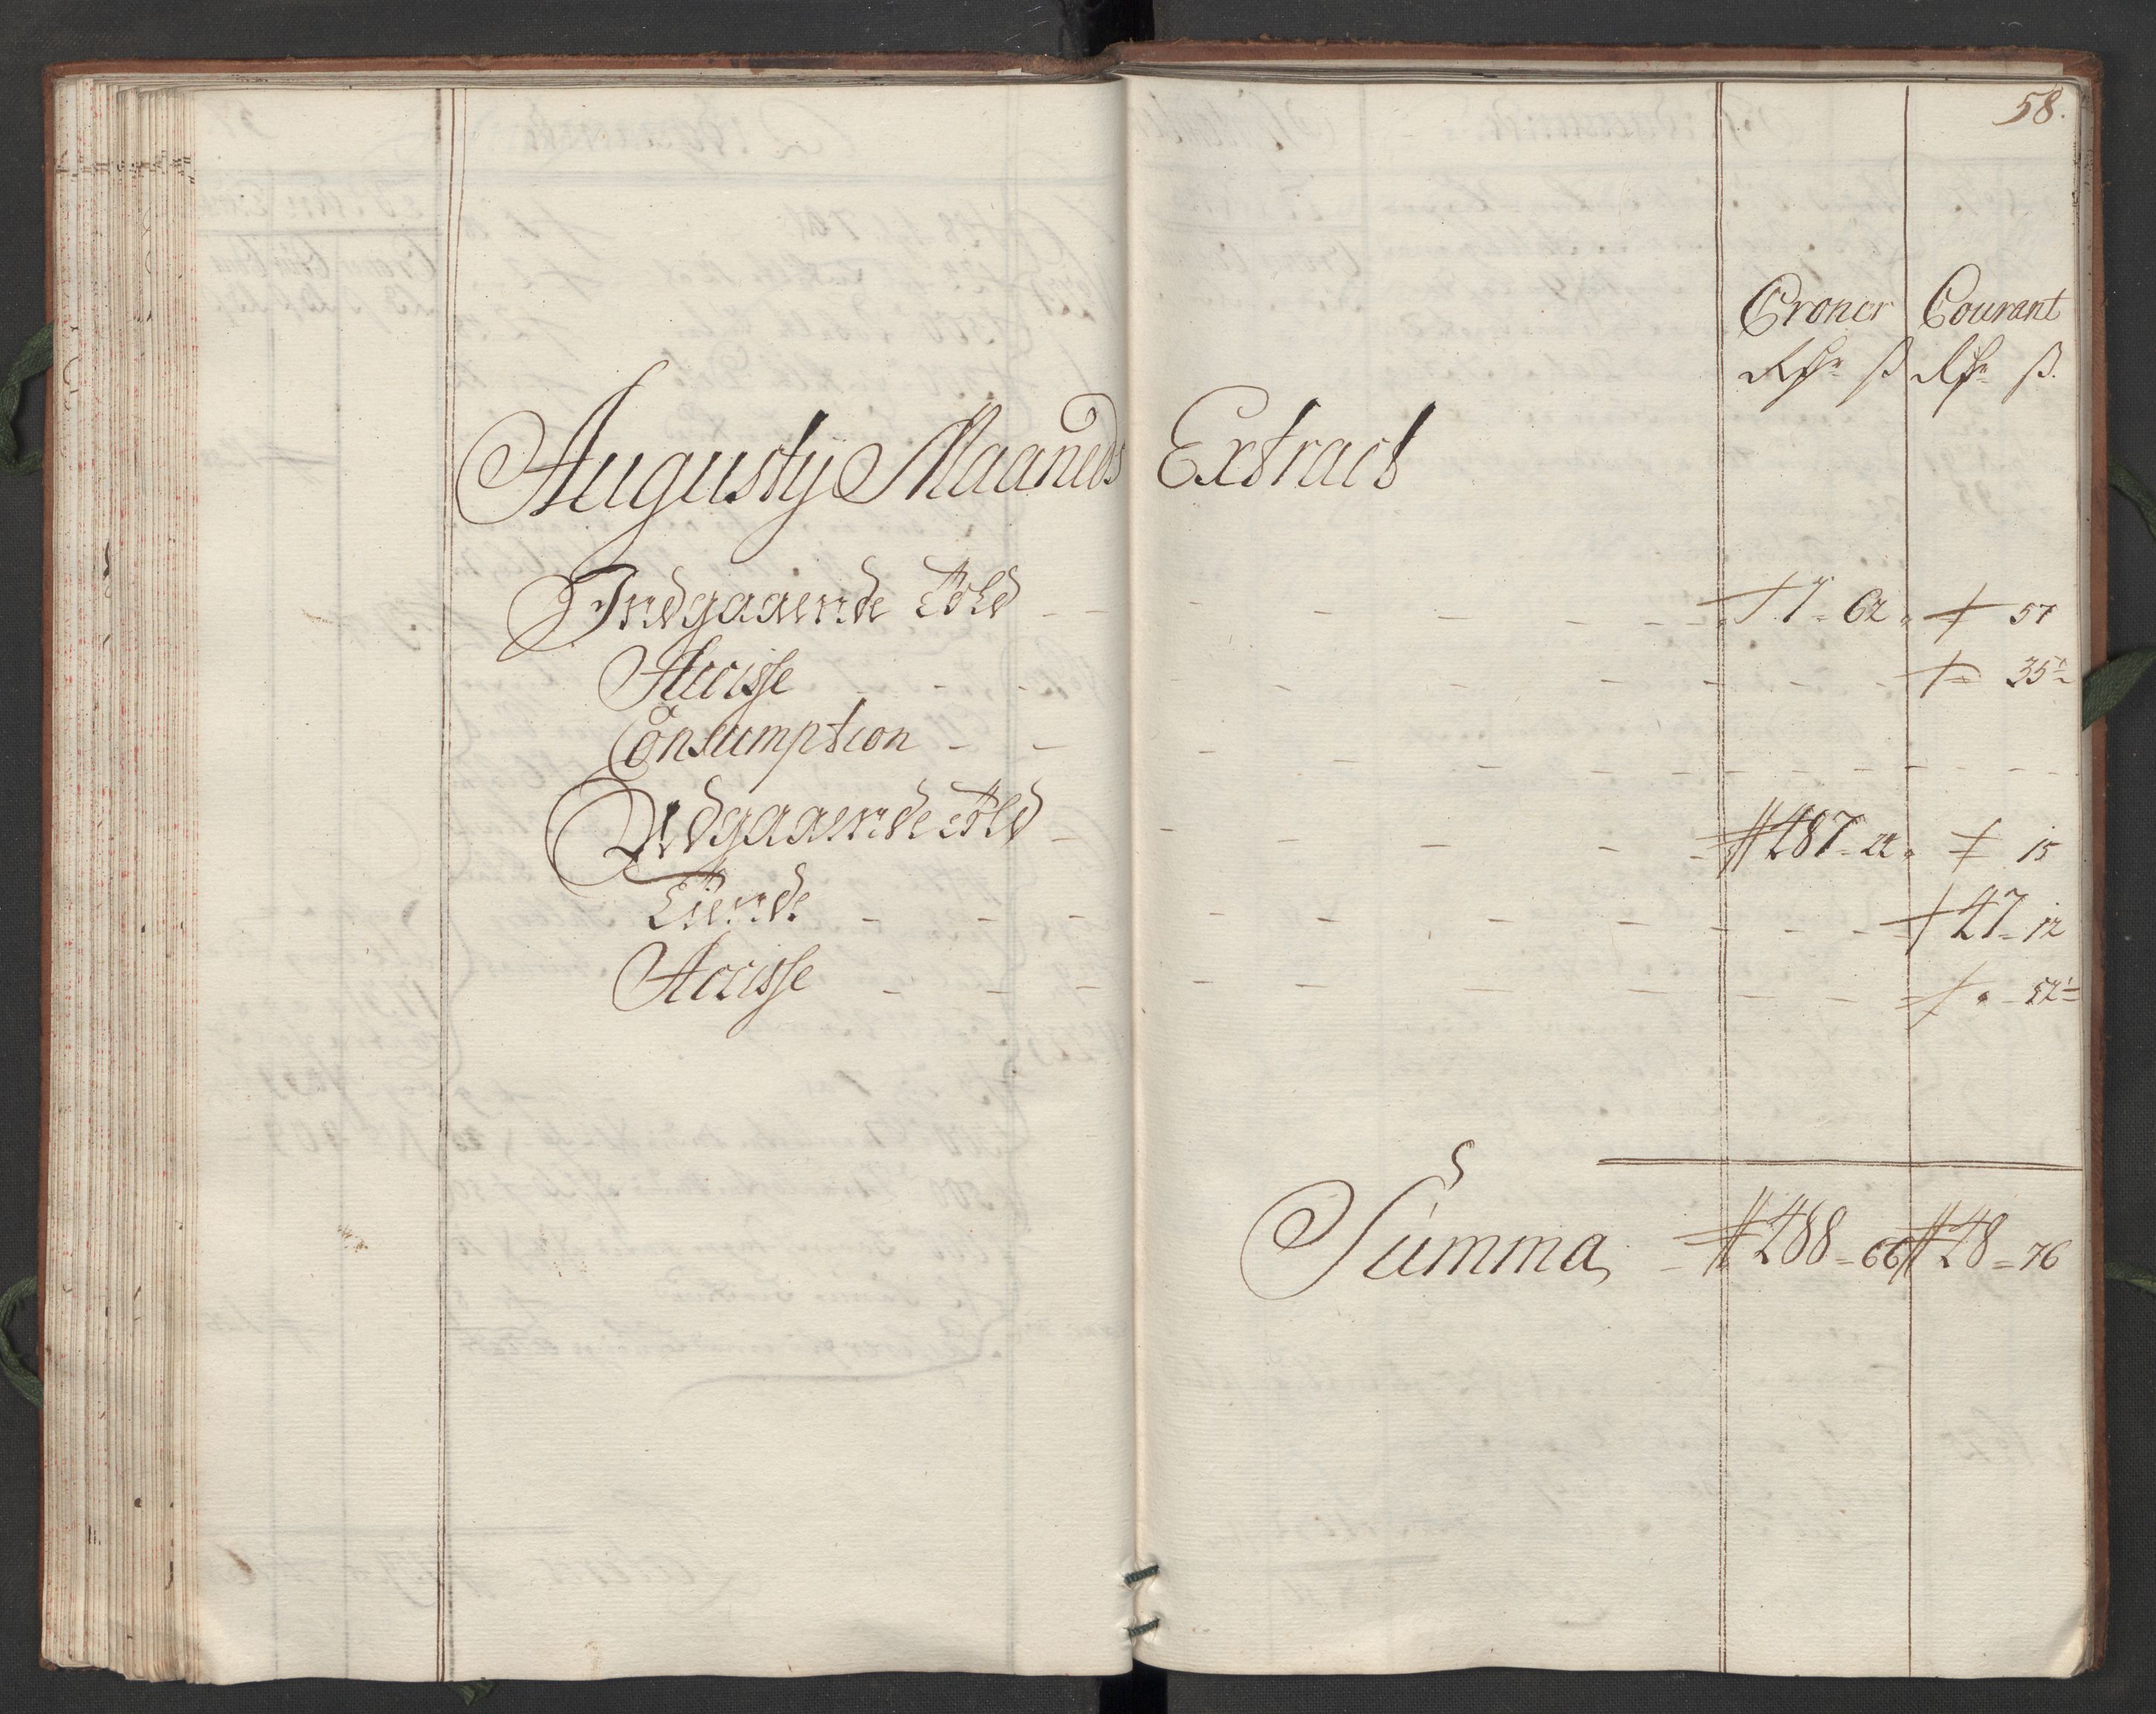 58.
Croner Courant
Rdr ß Rdr ß.
Augusty Maaneds Extract
Indgaaende Told - 1 - 62 - 57
Accisse - 35½
Consumption -
Udgaaende Told - 487 - 24 - 15
Tiende - 47 - 12
Accisse - 52½
Summa - 488 - 66 48 - 76